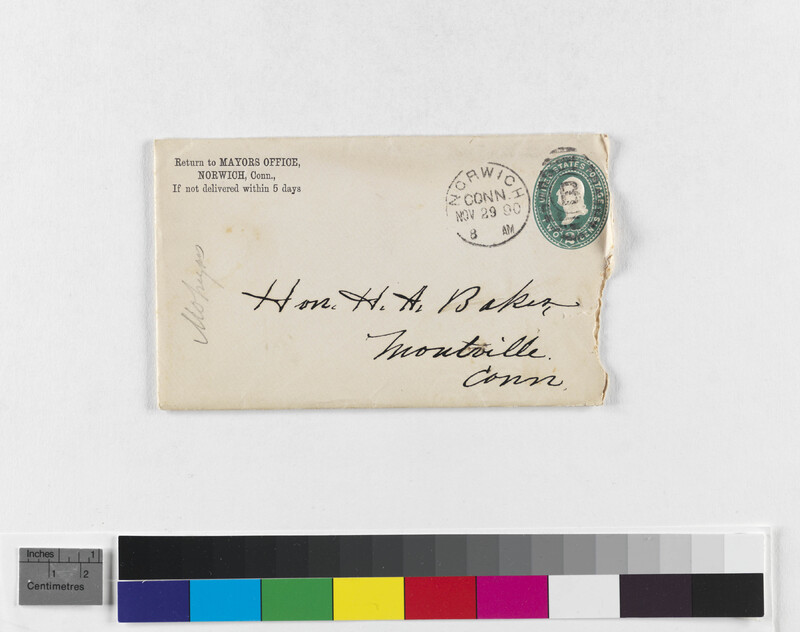 Return to MAYORS OFFICE,
NORWICH, Conn.,
If not delivered within 5 days
NORWICH
CONN.
NOV 29 90
8 AM
UNITED STATES POSTAGE
TWO CENTS
2
Mohegans
Hon. H. A. Baker,
Montville.
Conn.
Inches 1
1 2
Centimetres